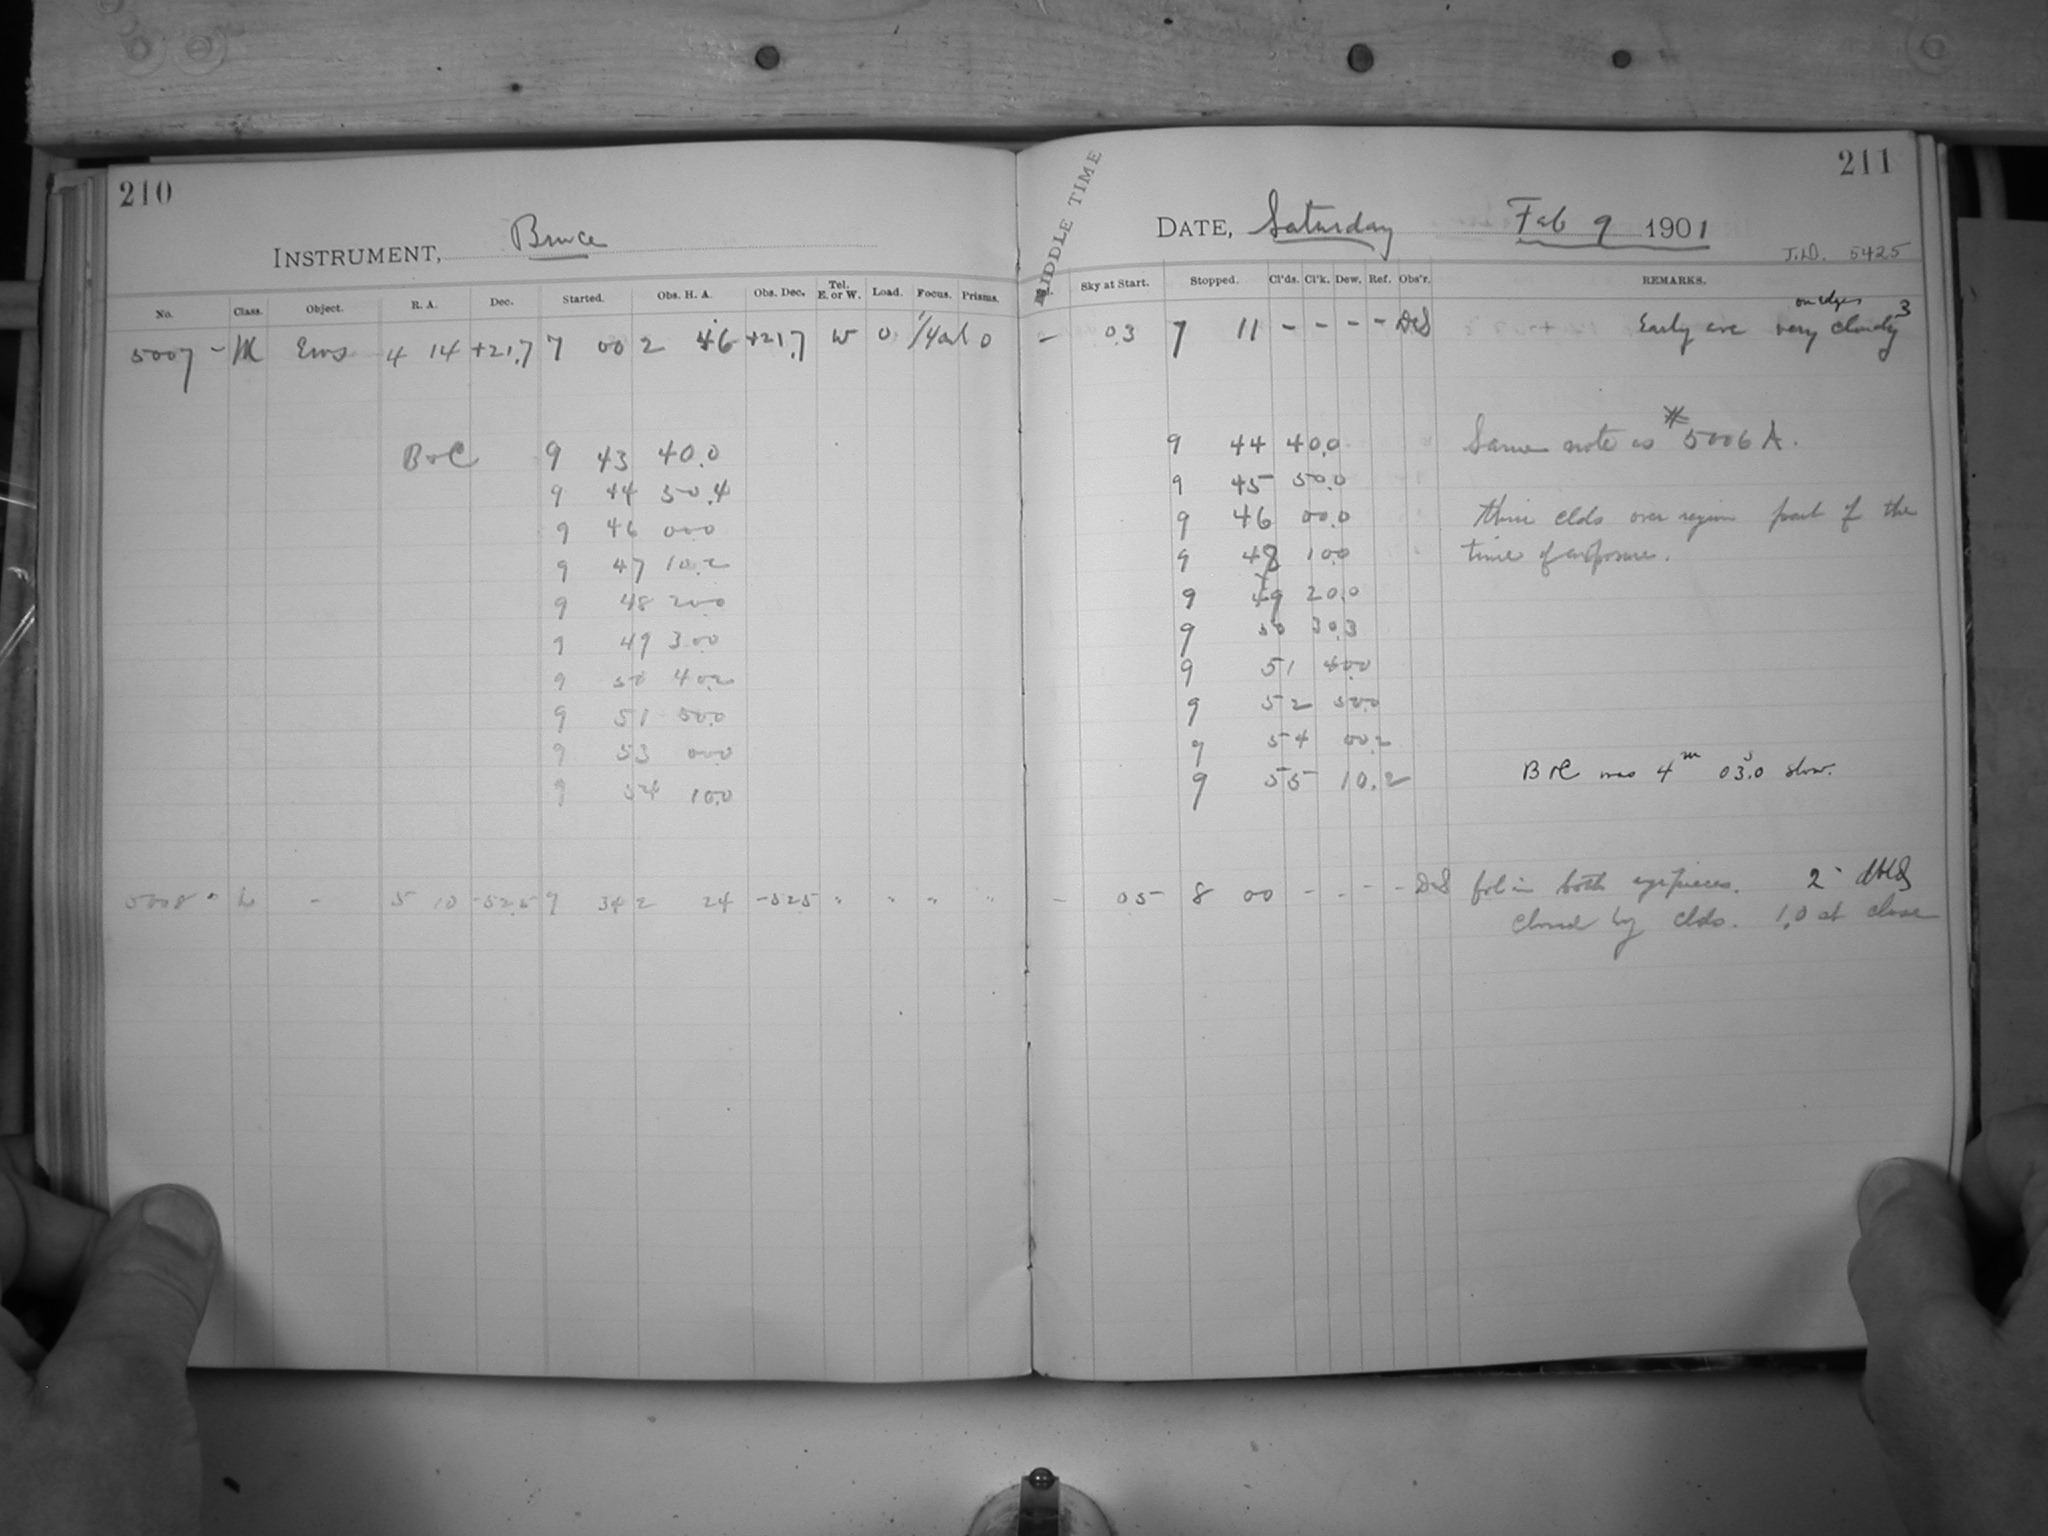 210
INSTRUMENT, Bruce
No. Class. Object. R. A. Dec. Started. Obs. H. A. Obs. Dec. Tel. E. or W. Load. Focus. Prisms.
5007 - M Eros 4 14 +21.7 7 00 2 46 +21.7 W 0 0
B&C 9 43 40.0
9 44 50.4
9 46 00.0
9 47 10.2
9 48 20.0
9 49 30.0
9 50 40.2
9 51 50.0
9 53 00.0
9 54 10.0
5008 L - 5 10 -52.5 9 34 2 24 -52.5 " " " "
211
MIDDLE TIME
DATE, Saturday Feb 9 1901
J.D. 5425
Sky at Start. Stopped. Cl'ds. Cl'k. Dew. Ref. Obs'r. REMARKS.
on edges
- 03 7 11 - - - - DeS Early are very cloudy 3
9 44 40.0 Same note as # 5006 A.
9 45 50.0
9 46 00.0 Thin clds over region part of the
9 48 10.0 time of exposure.
9 49 20.0
9 50 30.3
9 51 40.0
9 52 50.0
9 54 00.2
9 55 10.2 B&C was 4m 03.0s slow.
- 05 8 00 - - - - DeS fol in both eyepieces. 2
Closed by clds. 1.0 at close